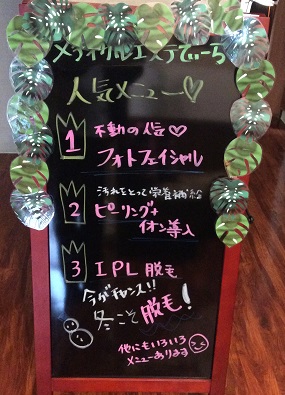 メディカルエステでぃーら
人気メニュー♡
1 不動の人気♡
フォトフェイシャル
汚れをとって栄養補給
2 ピーリング+
イオン導入
3 IPL脱毛
今がチャンス!!
冬こそ脱毛!
他にもいろいろ
メニューあります